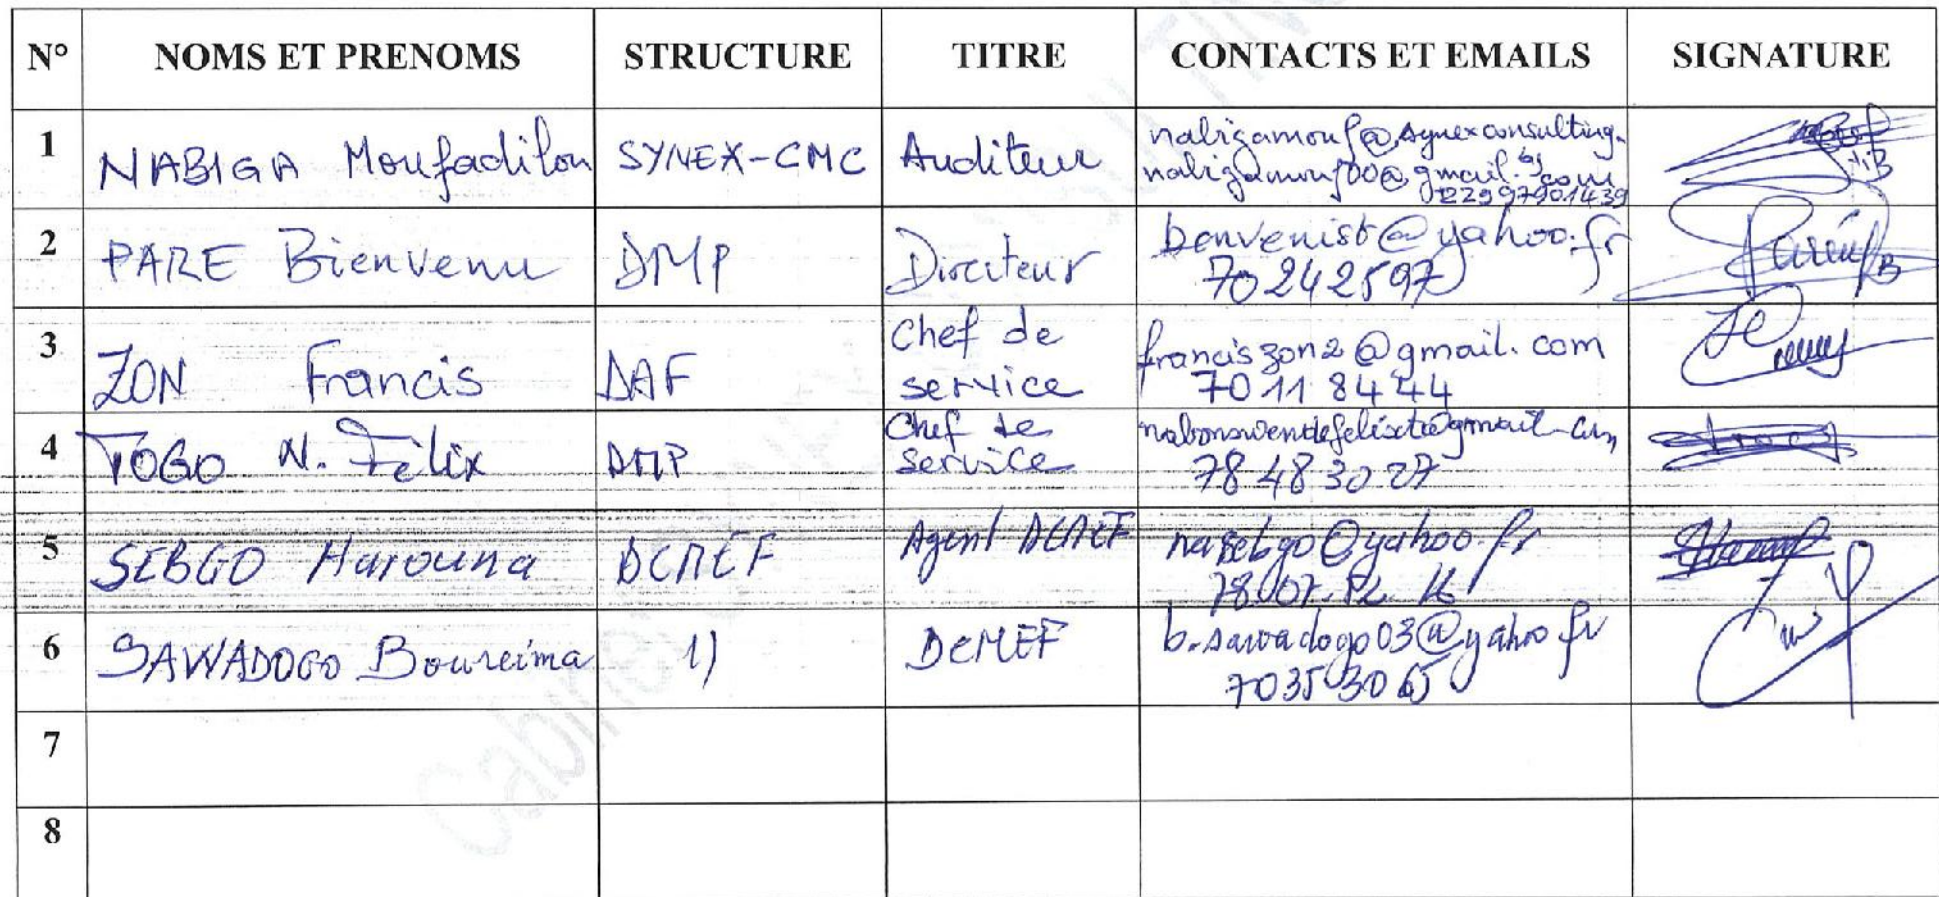 N° NOMS ET PRENOMS STRUCTURE TITRE CONTACTS ET EMAILS SIGNATURE
1 NABIGA Moufadilou SYNEX-CMC Auditeur nabigamouf@synexconsulting.bj
nabigamouf00@gmail.com
22997901439
2 PARE Bienvenu DMP Directeur benvenist@yahoo.fr
70242597
3 ZON Francis DAF Chef de service franciszon2@gmail.com
70 11 84 44
4 TOGO N. Félix DMP Chef de service
78 48 30 27
5 SEBGO Harouna DCMEF Agent DCMEF nasebgo@yahoo.fr
6 SAWADOGO Boureima 1) DCMEF b.sawadogo03@yahoo.fr
70353065
7
8